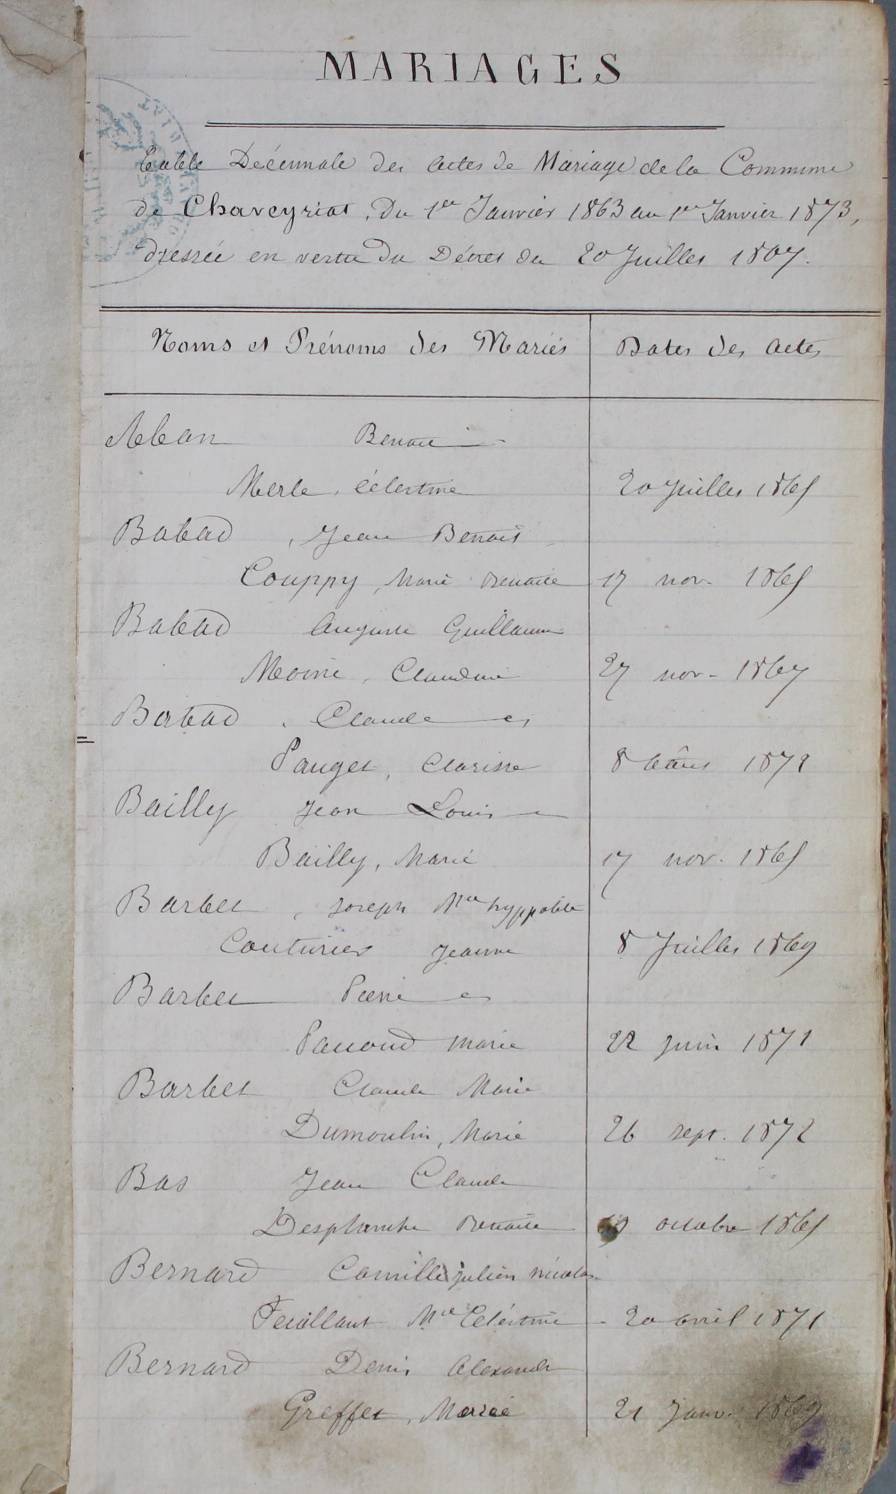 MARIAGES
Table Décennale des actes de Mariage de la Commune
de Chaveyriat, Du 1er Janvier 1863 au 1er Janvier 1873,
dressée en vertu du Décret du 20 Juillet 1807.
Noms et Prénoms des Mariés Dates des actes
Alban Benoit
Merle, Célestine 20 Juillet 1865
Babad, Jean Benoit
Couppy, Marie Benoite 17 nov. 1865
Babad Auguste Guillaume
Moine, Claudine 27 nov. 1867
Babad, Claude
Pauget, Clarisse 8 1872
Bailly Jean Louis
Bailly, Marie 17 nov. 1865
Barbet, Joseph Mie hyppolite
Couturier Jeanne 8 Juillet 1869
Barbet Pierre
marie 22 juin 1871
Barbet Claude Marie
Dumoulin, Marie 26 sept. 1872
Bas Jean Claude
Desplanche Benoite octobre 1865
Bernard Camille julien nicolas
Feuillant Mie Celéstine 20 avril 1871
Bernard Denis Alexandre
Greffet, Marie 21 Janv. 1869